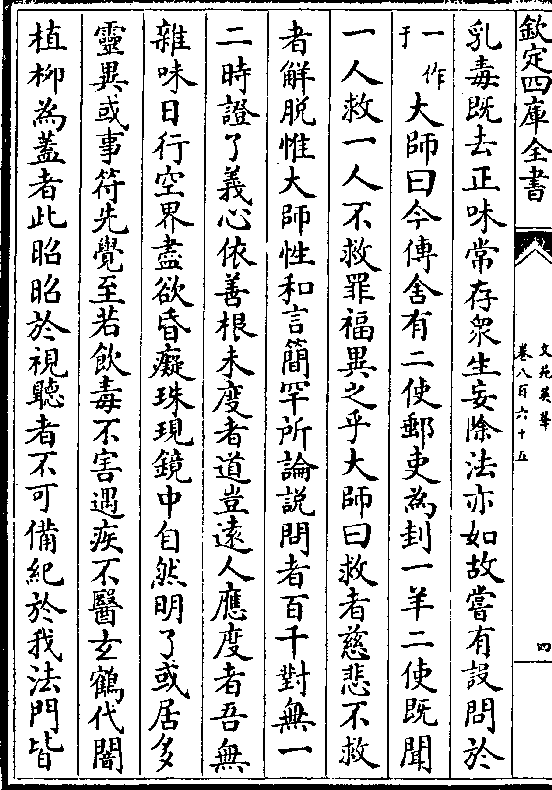 欽定四庫全書
文苑英華
卷八百六十五
四
乳毒既去正味常存衆生妄除法亦如故嘗有設問於
一作于大師曰今傳舍有二使郵吏為刲一羊二使既聞
一人救一人不救罪福異之乎大師曰救者慈悲不救
者解脱惟大師性和言簡罕所論説問者百千對無一
二時證了義心依善根未度者道豈逺人應度者吾無
雜味日行空界盡欲昏癡珠現鏡中自然明了或居多
靈異或事符先覺至若飲毒不害遇疾不醫𤣥鶴代闇
植柳為蓋者此昭昭於視聽者不可備紀於我法門皆